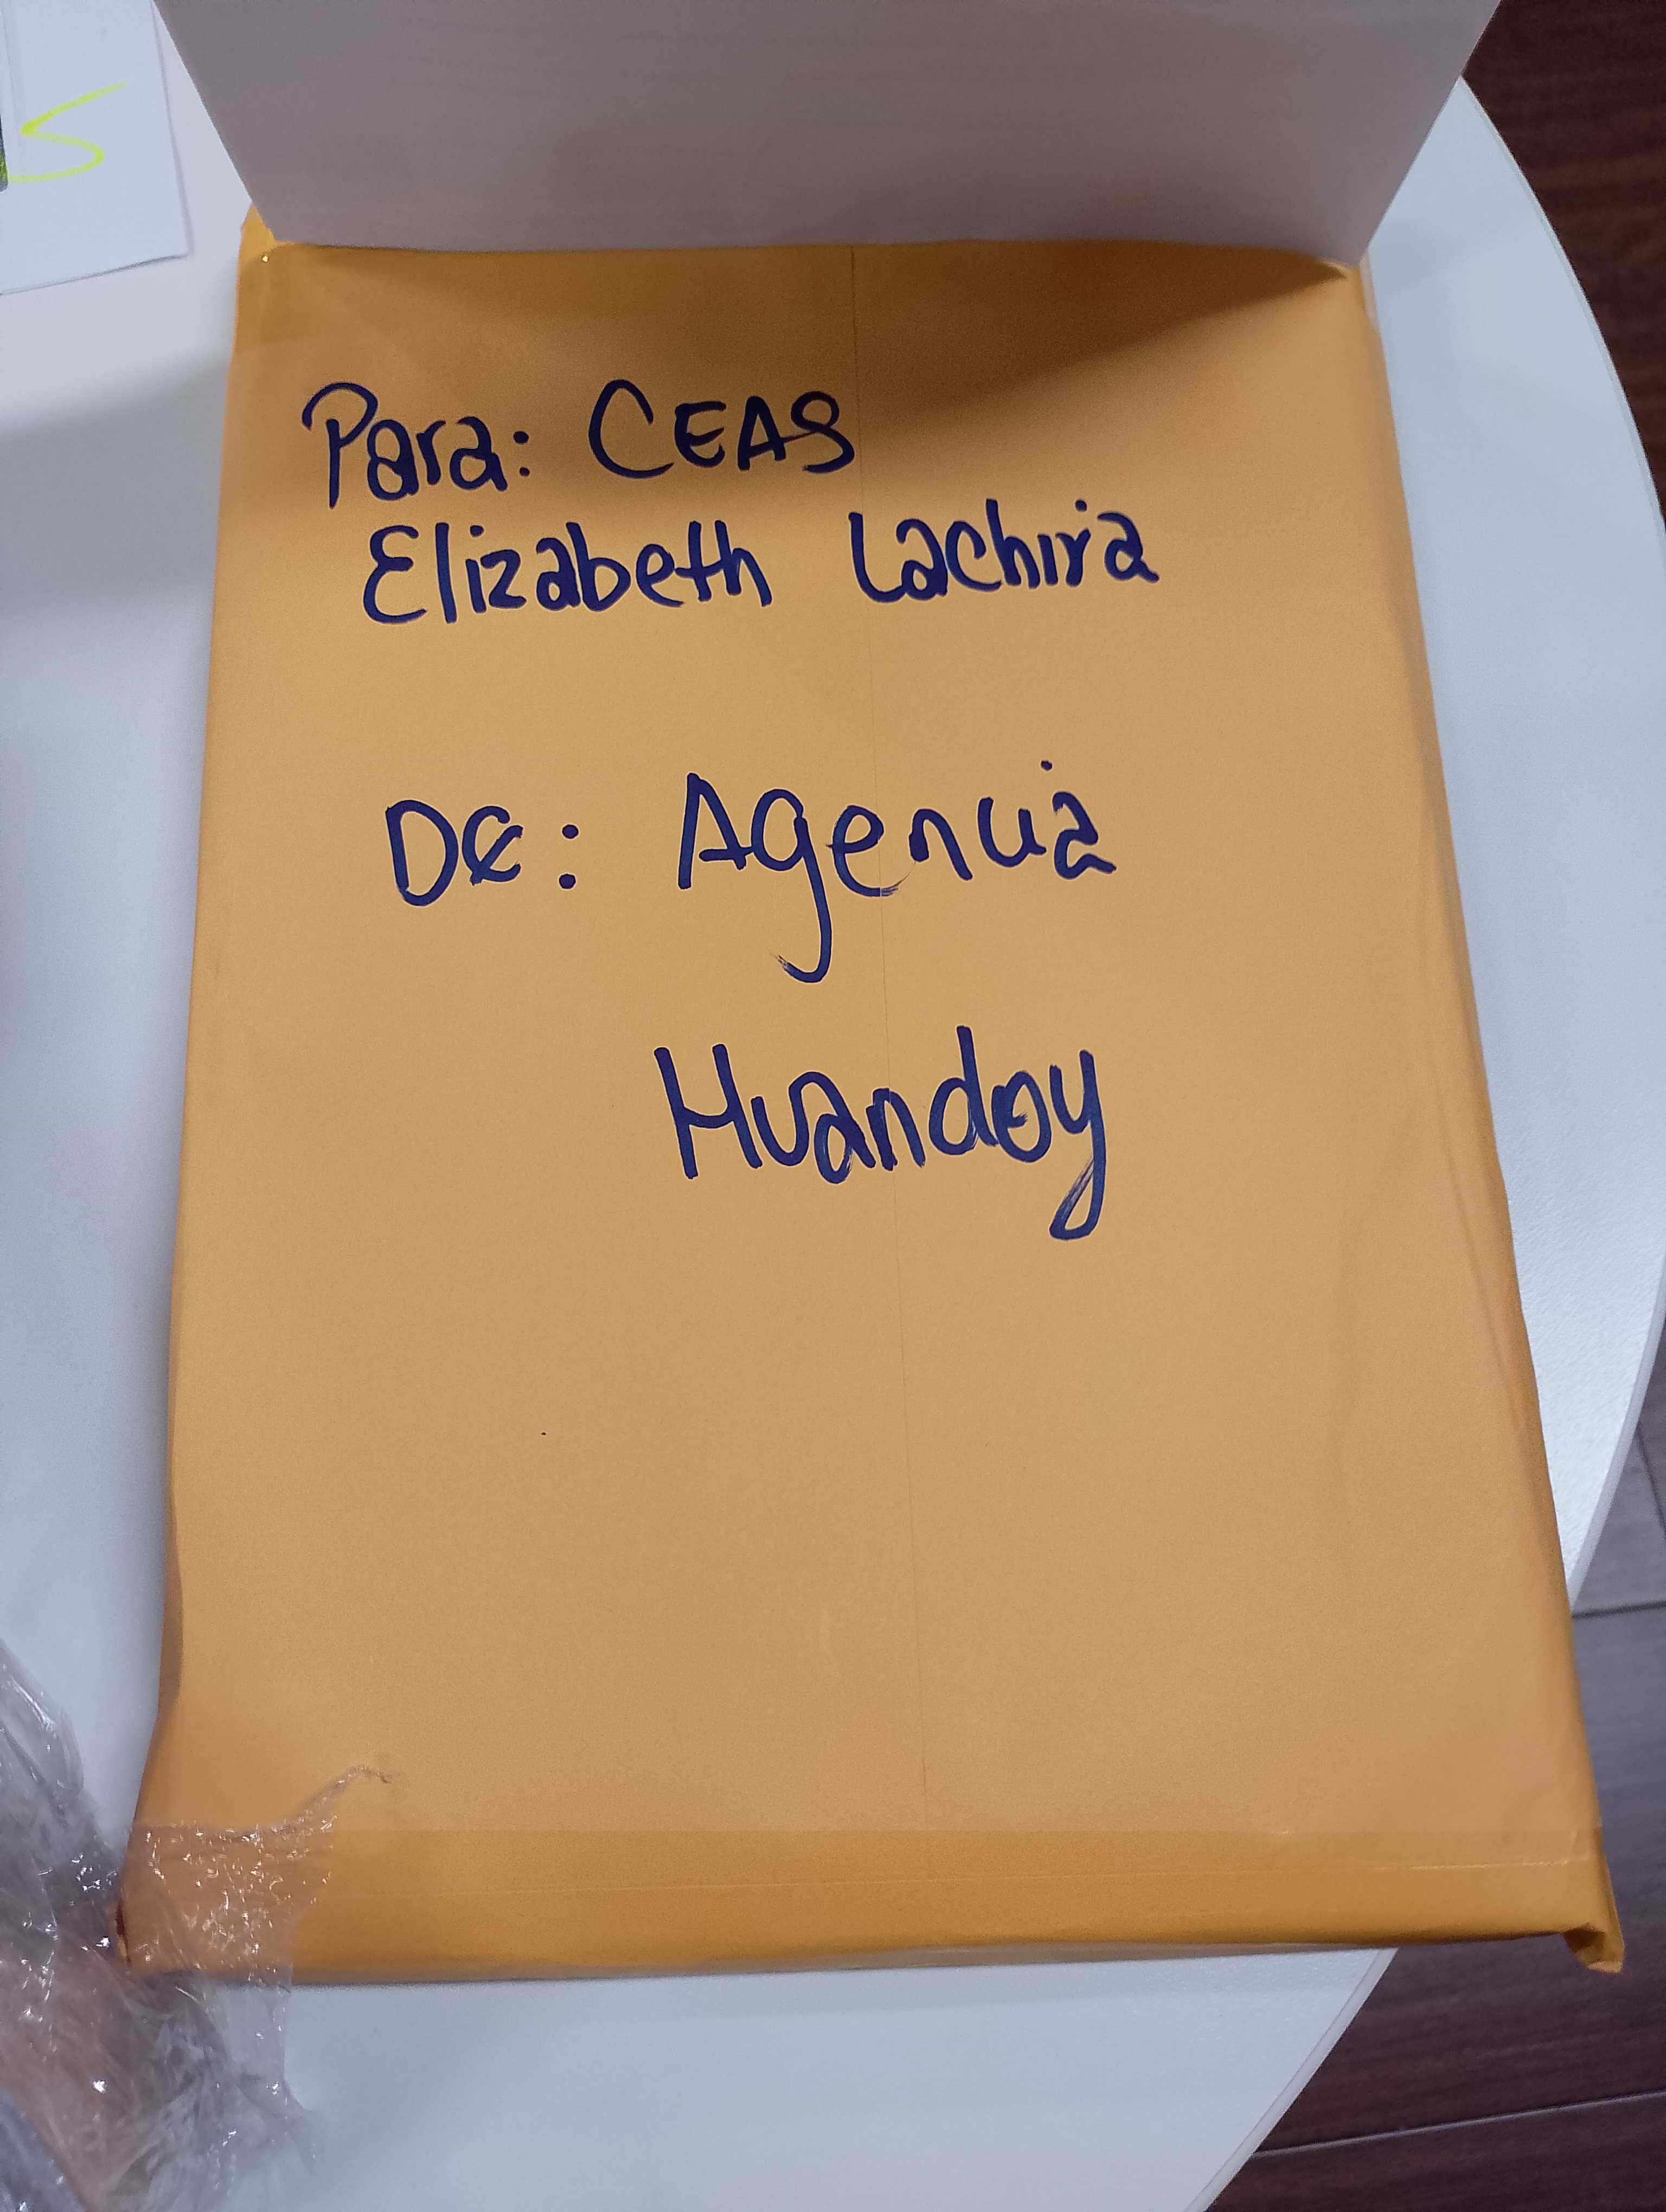 S
Para: CEAS
Elizabeth Lachira
De: Agencia
Huandoy